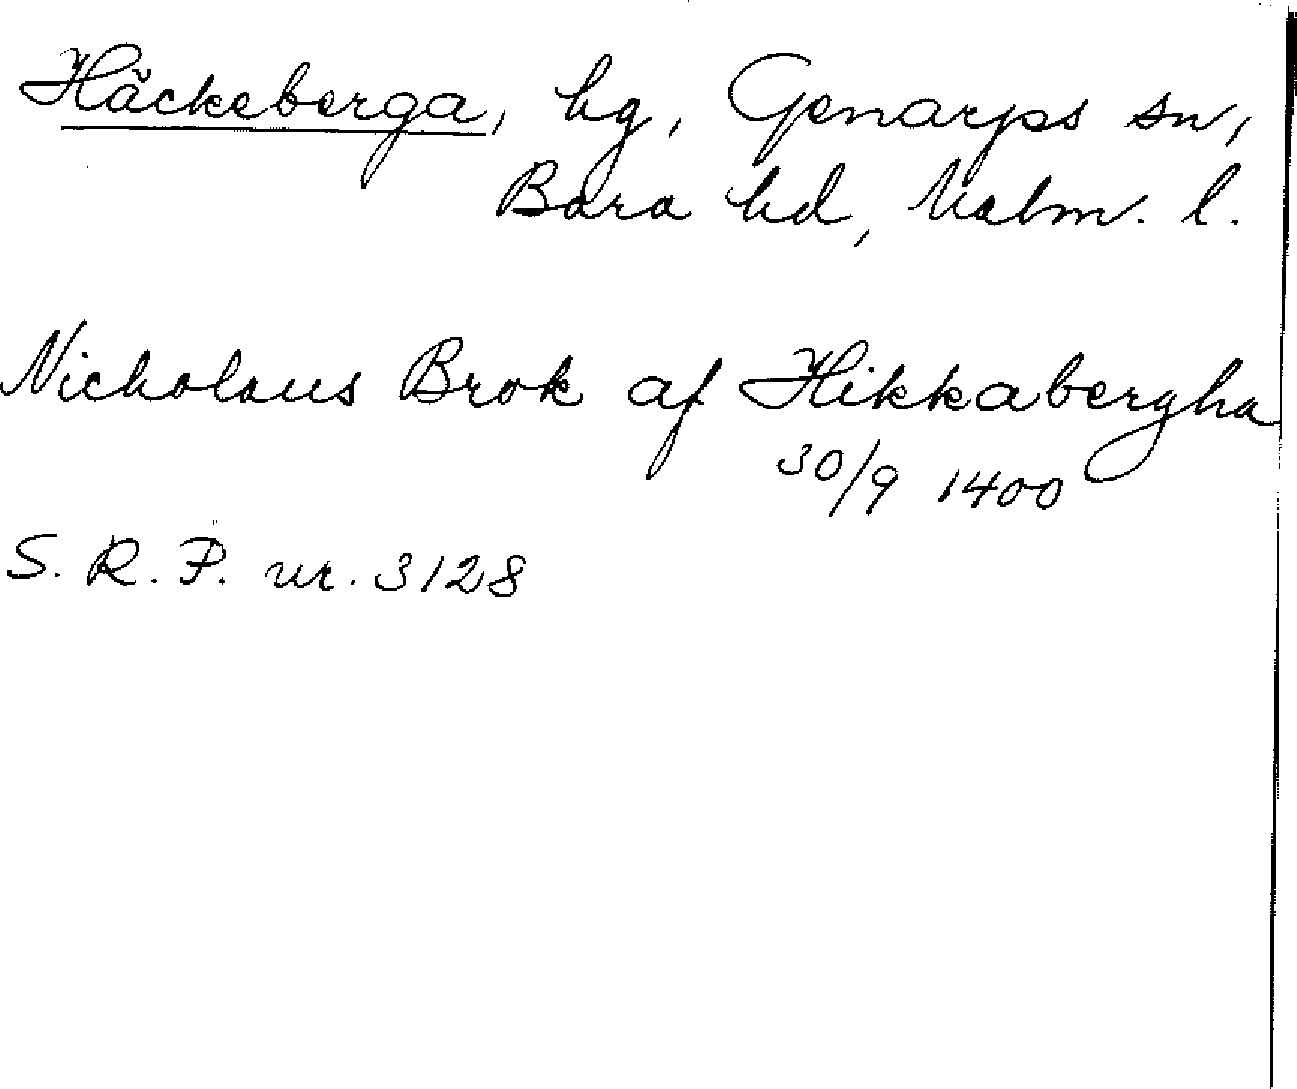 Häckeberga, hg, Genarps sn,
Bara hd, Malm. l.
Nicholaus Brok af Hikkabergha
30/9 1400
S. R. P. nr. 3128